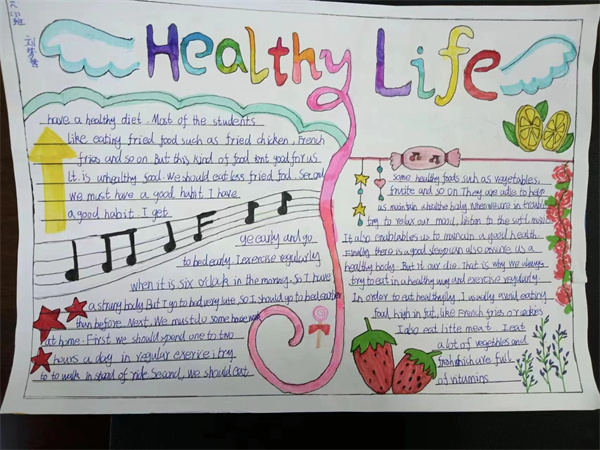 Healthy Life
have a healthy diet. Most of the students
like eating fried food such as fried chicken, French
fries and so on. But this kind of food isnt good for us.
It is unhealthy food. We should eat less fried fod. Second
we must have a good habit. I have
a good habit. I get
up early and go
to bed early. I exercise regularly
when it is six o'clock in the morning. So I have
a strong body. But I go to bed very late, So I should go to bed earlier
than before. Next. We must do some house work
at home. First we should spend one to two
hours a day in regular exercise; try
to walk instead of ride. Second, we should eat
some healthy foods such as vegetables,
fruite and so on. They are able to help
us maintain a healthe body. When we are in trouble
try to relax our mood, listen to the soft music
It also enablables us to maintain a good health.
Finally, there is a good sleep can also assure us a
healthy body. But it our die. That is why we always
try to eat in a healthy way and exercise regularly.
In order to eat healthyily, I usually avoid eating
food high in fat, like French fries or cookies
I also eat little meat. I eat
a lot of vegetables and
fresh which are full
of vitumins